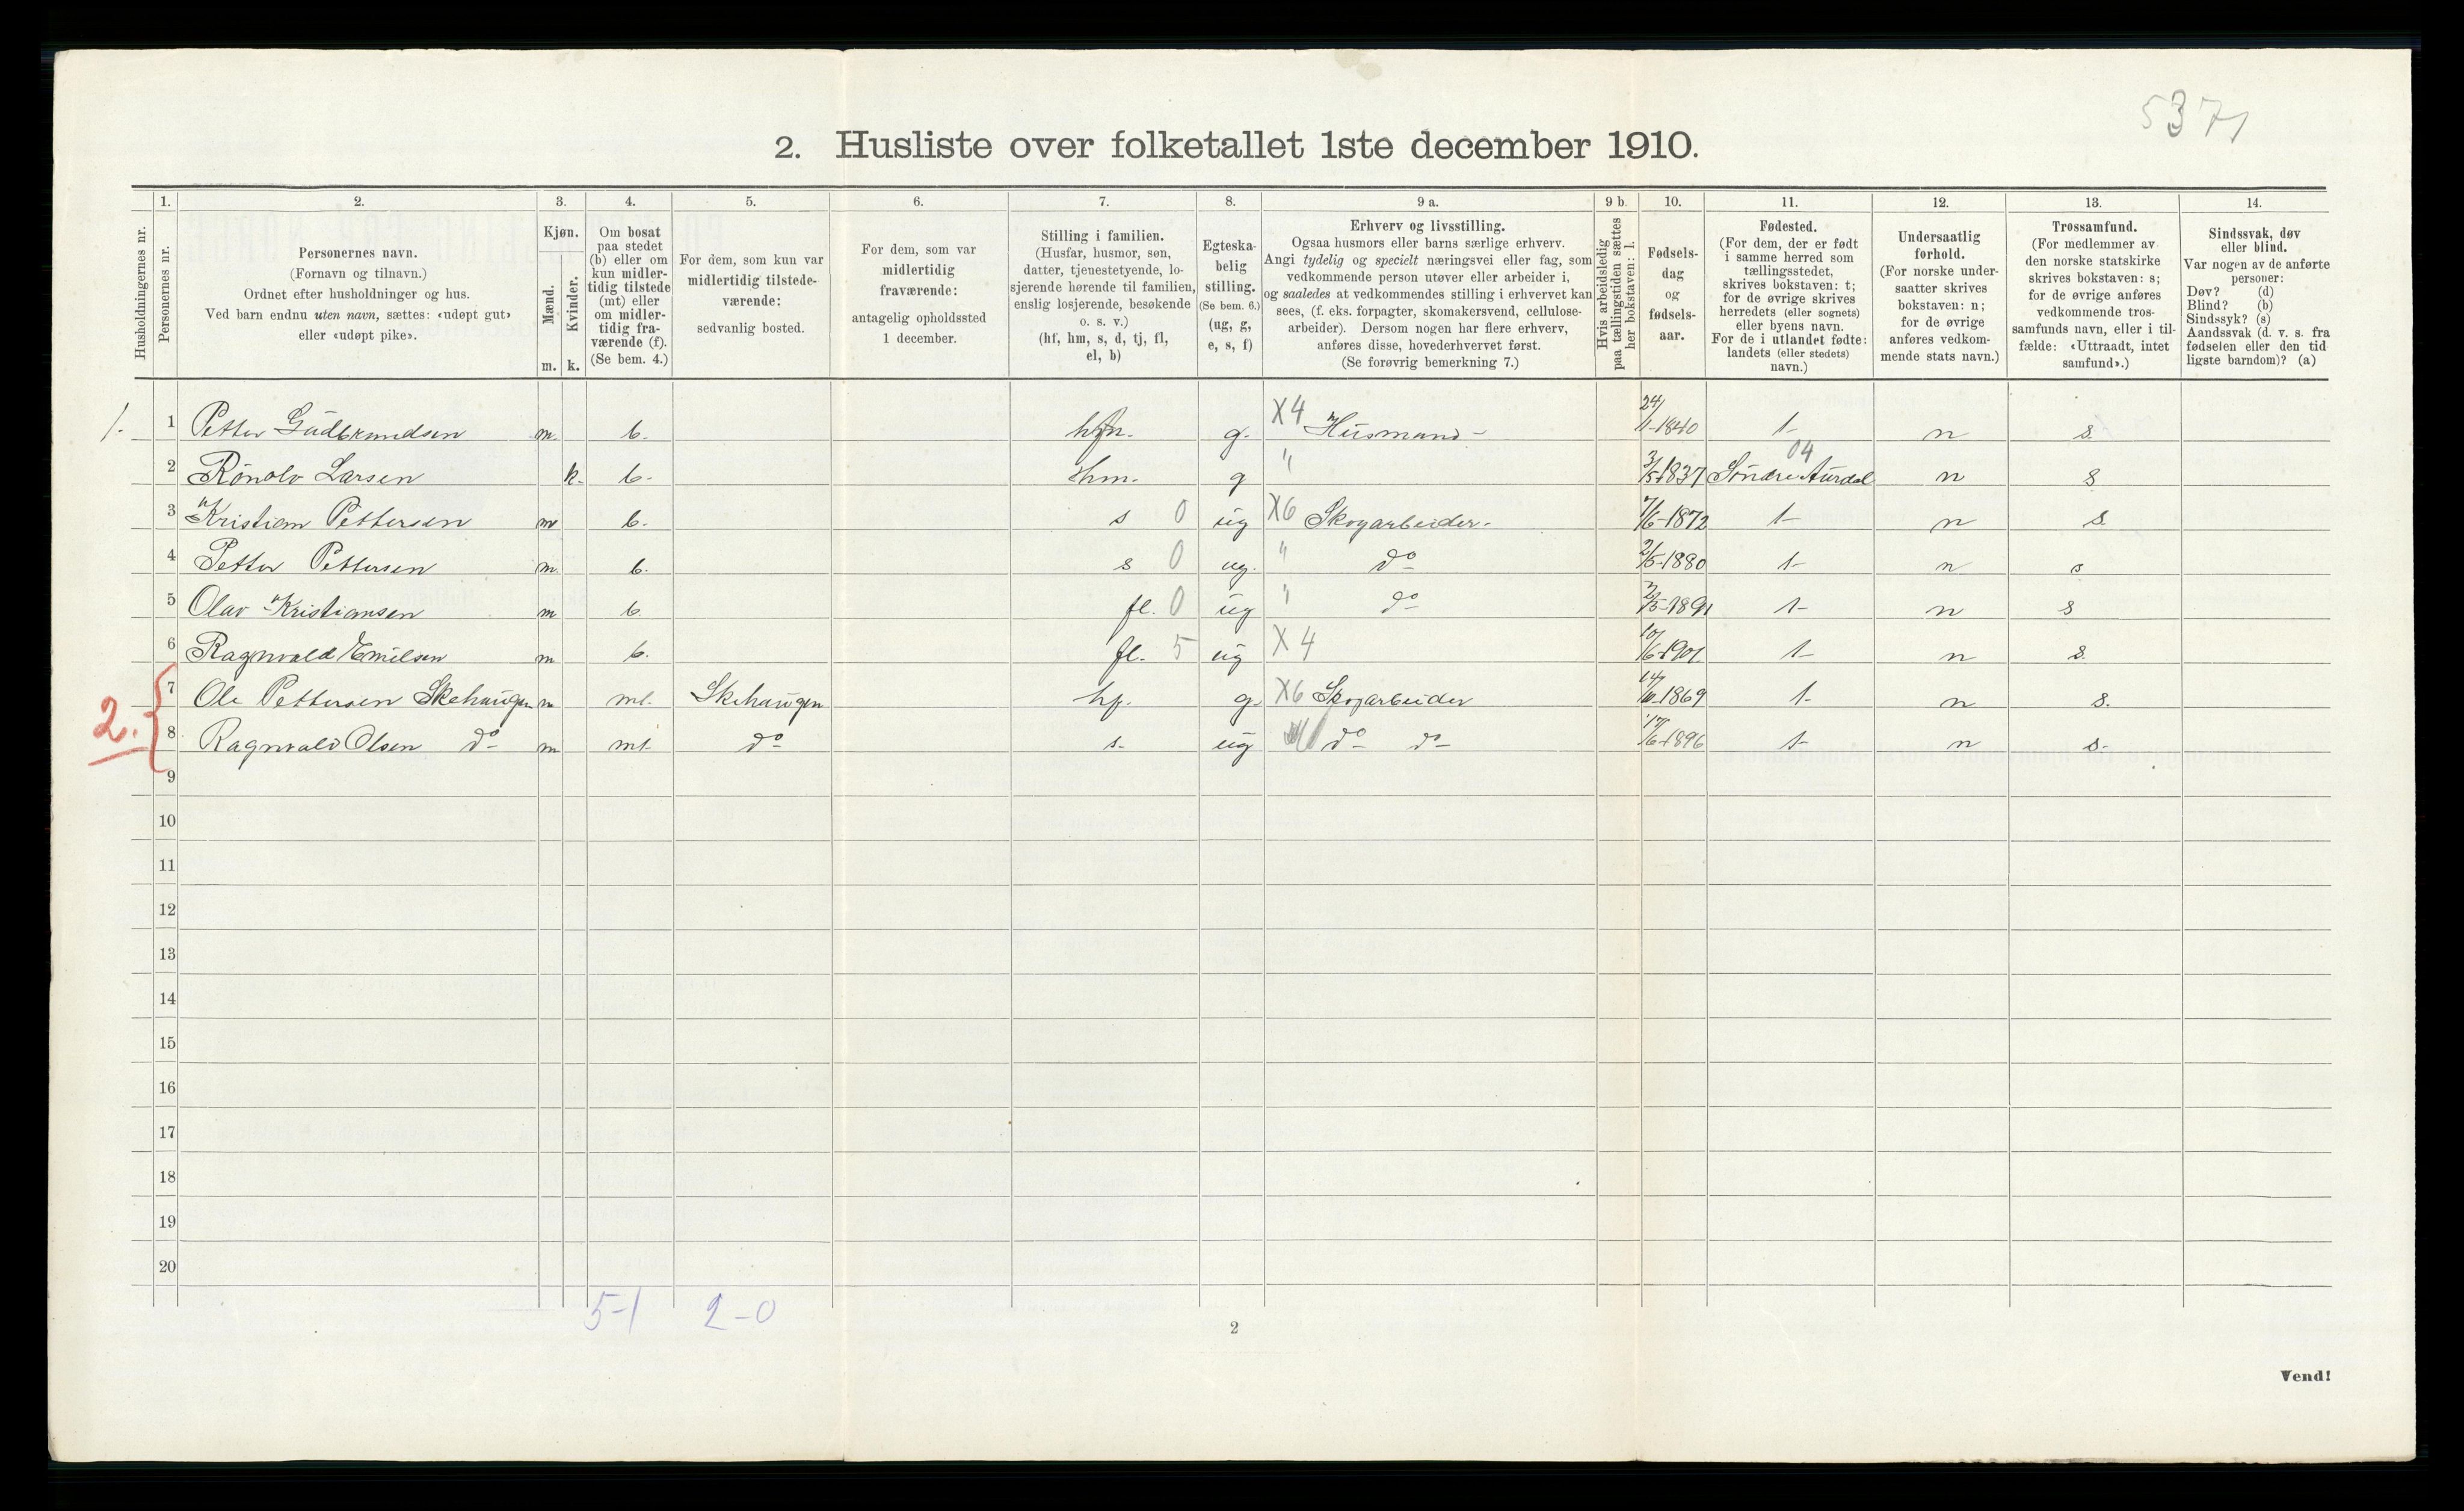 5371
2. Husliste over folketallet 1ste december 1910.
Husholdningernes nr.
1.
Personernes nr.
2.
Personernes navn.
(Fornavn og tilnavn.)
Ordnet efter husholdninger og hus.
Ved barn endnu uten navn, sættes: «udøpt gut»
eller «udøpt pike».
3.
Kjøn.
Mænd.
m.
Kvinder.
k.
4.
Om bosat
paa stedet
(b) eller om
kun midler-
tidig tilstede
(mt) eller
om midler-
tidig fra-
værende (f).
(Se bem. 4.)
5.
For dem, som kun var
midlertidig tilstede-
værende:
sedvanlig bosted.
6.
For dem, som var
midlertidig
fraværende:
antagelig opholdssted
1 december.
7.
Stilling i familien.
(Husfar, husmor, søn,
datter, tjenestetyende, lo-
sjerende hørende til familien,
enslig losjerende, besøkende
o. s. v.)
(hf, hm, s, d, tj, fl,
el, b)
8.
Egteska-
belig
stilling.
(Se bem. 6.)
(ug, g,
e, s, f)
9 a.
Erhverv og livsstilling.
Ogsaa husmors eller barns særlige erhverv.
Angi tydelig og specielt næringsvei eller fag, som
vedkommende person utøver eller arbeider i,
og saaledes at vedkommendes stilling i erhvervet kan
sees, (f. eks. forpagter, skomakersvend, cellulose-
arbeider). Dersom nogen har flere erhverv,
anføres disse, hovederhvervet først.
(Se forøvrig bemerkning 7.)
9 b.
Hvis arbeidsledig
paa tællingstiden sættes
her bokstaven: l.
10.
Fødsels-
dag
og
fødsels-
aar.
11.
Fødested.
(For dem, der er født
i samme herred som
tællingsstedet,
skrives bokstaven: t;
for de øvrige skrives
herredets (eller sognets)
eller byens navn.
For de i utlandet fødte:
landets (eller stedets)
navn.)
12.
Undersaatlig
forhold.
(For norske under-
saatter skrives
bokstaven: n;
for de øvrige
anføres vedkom-
mende stats navn.)
13.
Trossamfund.
(For medlemmer av
den norske statskirke
skrives bokstaven: s;
for de øvrige anføres
vedkommende tros-
samfunds navn, eller i til-
fælde: «Uttraadt, intet
samfund».)
14.
Sindssvak, døv
eller blind.
Var nogen av de anførte
personer:
Døv? (d)
Blind? (b)
Sindssyk? (s)
Aandssvak (d. v. s. fra
fødselen eller den tid
ligste barndom)? (a)
1. 1 Petter Gudbrandsen m. b. g. X4 Husmand - 24/1-1840 t n s.
2 Rønolv Larsen k. b. hm. g " 1837 Søndre Aurdal 04 n s
3 Kristian Pettersen m b. s 0 ug X6 Skogarbeider. 7/6-1872 t n s.
4 Petter Pettersen m. b. s 0 ug. " do 2/5-1880 t n s
5 Olav Kristiansen m b. fl. 0 ug " do t n s
6 Ragnvald Emilsen m b. fl. 5 ug X 4 t n s.
2. 7 Ole Pettersen Skehaugen m mt. Skehaugen hf. g. X6 Skogarbeider 1869 t n s.
8 Ragnvald Olsen do m mt do s. ug do do 1896 t n s.
9
10
11
12
13
14
15
16
17
18
19
20
5-1 2-0
2
Vend!